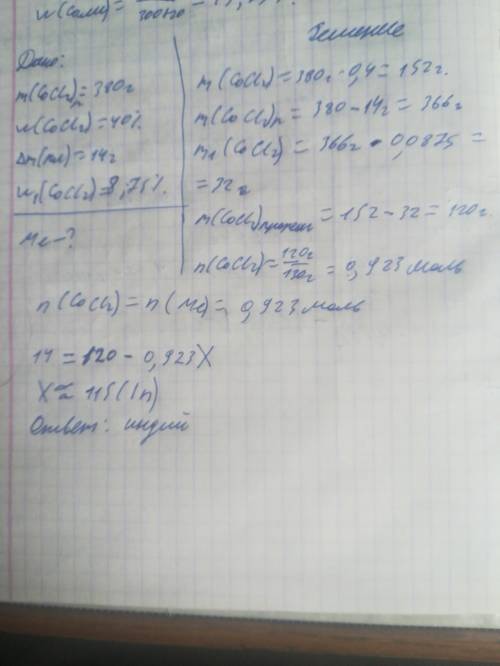 w(соли) =
Решение
Дано:
m(CoCl₂)р = 380г
w(CoCl₂) = 40%.
Δm(пл) = 14г
w₁(CoCl₂) = 8,75%.
Me - ?
m(CoCl₂) = 380г · 0,4 = 152г.
m(CoCl₂)р = 380 - 14г = 366г
m₁(CoCl₂) = 366г · 0,0875 =
= 32г
m(CoCl₂) = 152 - 32 = 120г.
n(CoCl₂) = 120г/130г = 0,923 моль
n(CoCl₂) = n(Me) = 0,923 моль
14 = 120 - 0,923X
X ≈ 115 (In)
Ответ: индий